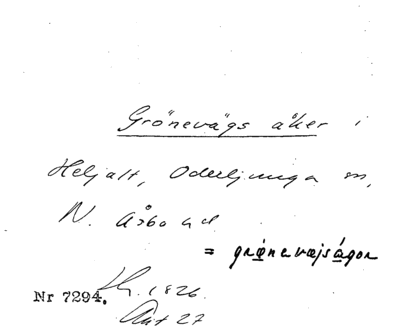 Grönevägs åker i
Heljalt, Oderljunga sn,
N. Åsbo hd
= grønevæjságor
Nr 7294. 1826
Akt 27